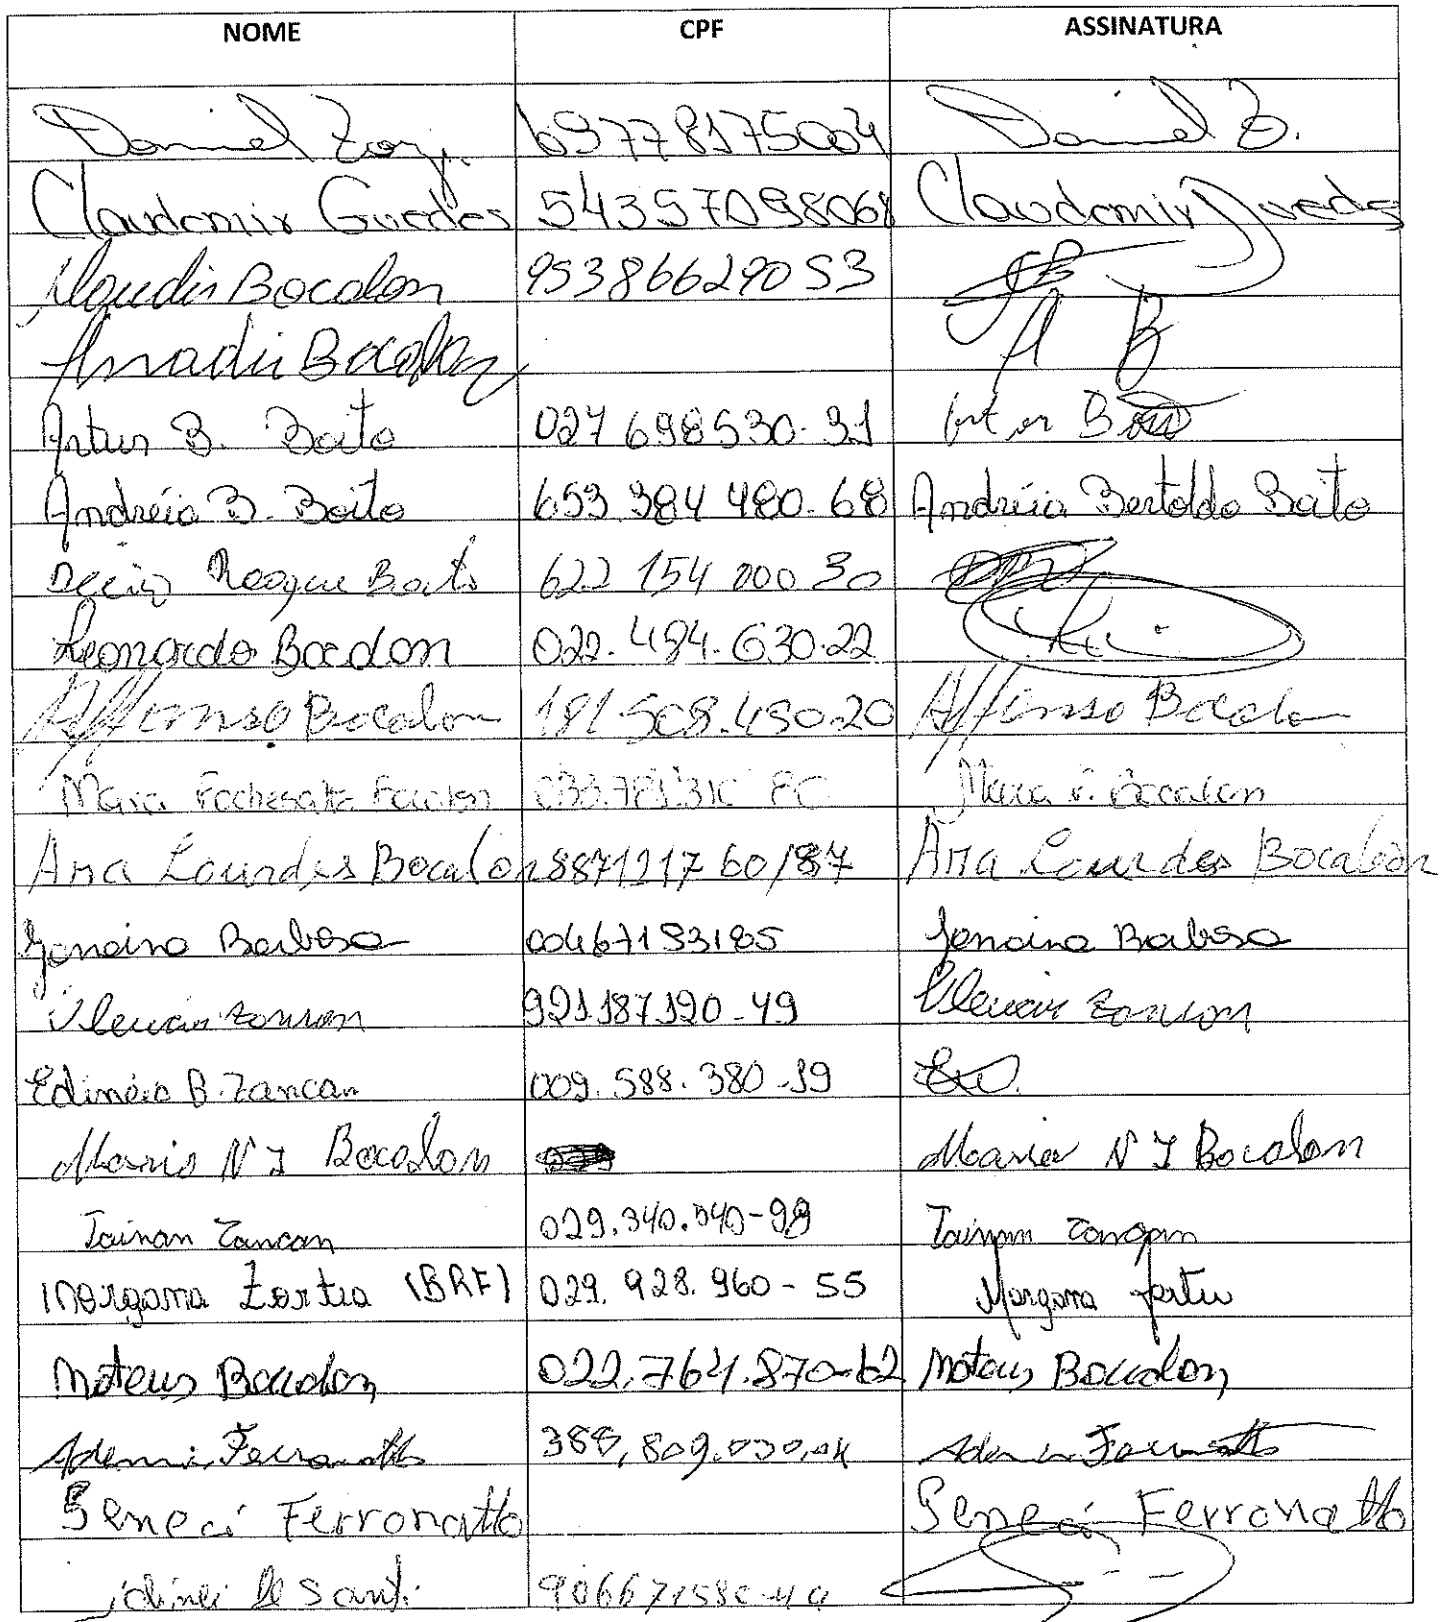 NOME CPF ASSINATURA
Daniel 69778175004 Daniel Z.
Claudemir Guedes 54357098068 Claudemir Guedes
Claudir Bocalon 95386629053
Bocalon A B
Artur B. Boito 027 698530-31
Andréia B. Boito 653 384 480-68 Andréia Bertoldo Boito
Roque Boito 622 154 000 30
Leonardo Bocalon 022.484.630-22
Affonso Bocalon 181.508.450-20 Affonso Bocalon
Mara Fochesatto Mara F. Bocalon
Ana Lourdes Bocalon 887121760/87 Ana Lourdes Bocalon
Janaina Barbosa 00467183185 Janaina Barbosa
921187120-49
Edinéia B. Zancan 009.588.380-19
Maria N I Bocalon Maria N I Bocalon
Tainan Zancan 029.340.340-99 Tainan Zancan
Morgana Zortea (BRF) 029.928.960-55 Morgana
Mateus Bocalon 022.764.870-62 Mateus Bocalon
Ademir Ferronatto Ademir Ferronatto
Ferronatto Ferronatto